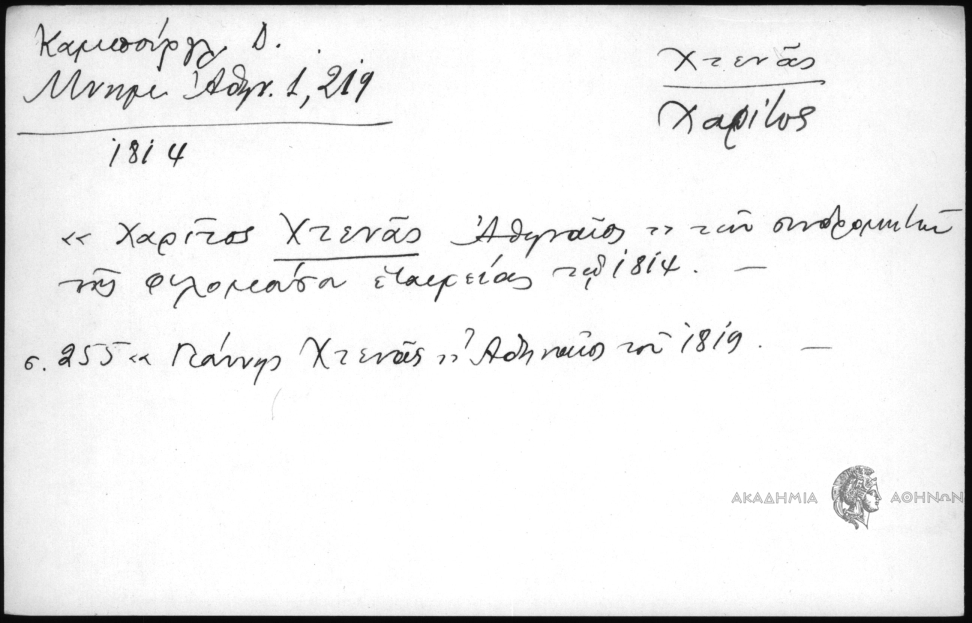 Καμπούργλ Δ.
Μνημεῖ Ἀθην. 1, 219
1814
Χτενᾶς
Χαρίτος
« Χαρῖτος Χτενᾶς Ἀθηναῖος » τῶν συνδρομητῶν
τῆς Φιλομούσου ἑταιρείας τοῦ 1814. —
σ. 255 « Γιάννης Χτενᾶς » Ἀθηναῖος τοῦ 1819. —
ΑΚΑΔΗΜΙΑ ΑΘΗΝΩΝ